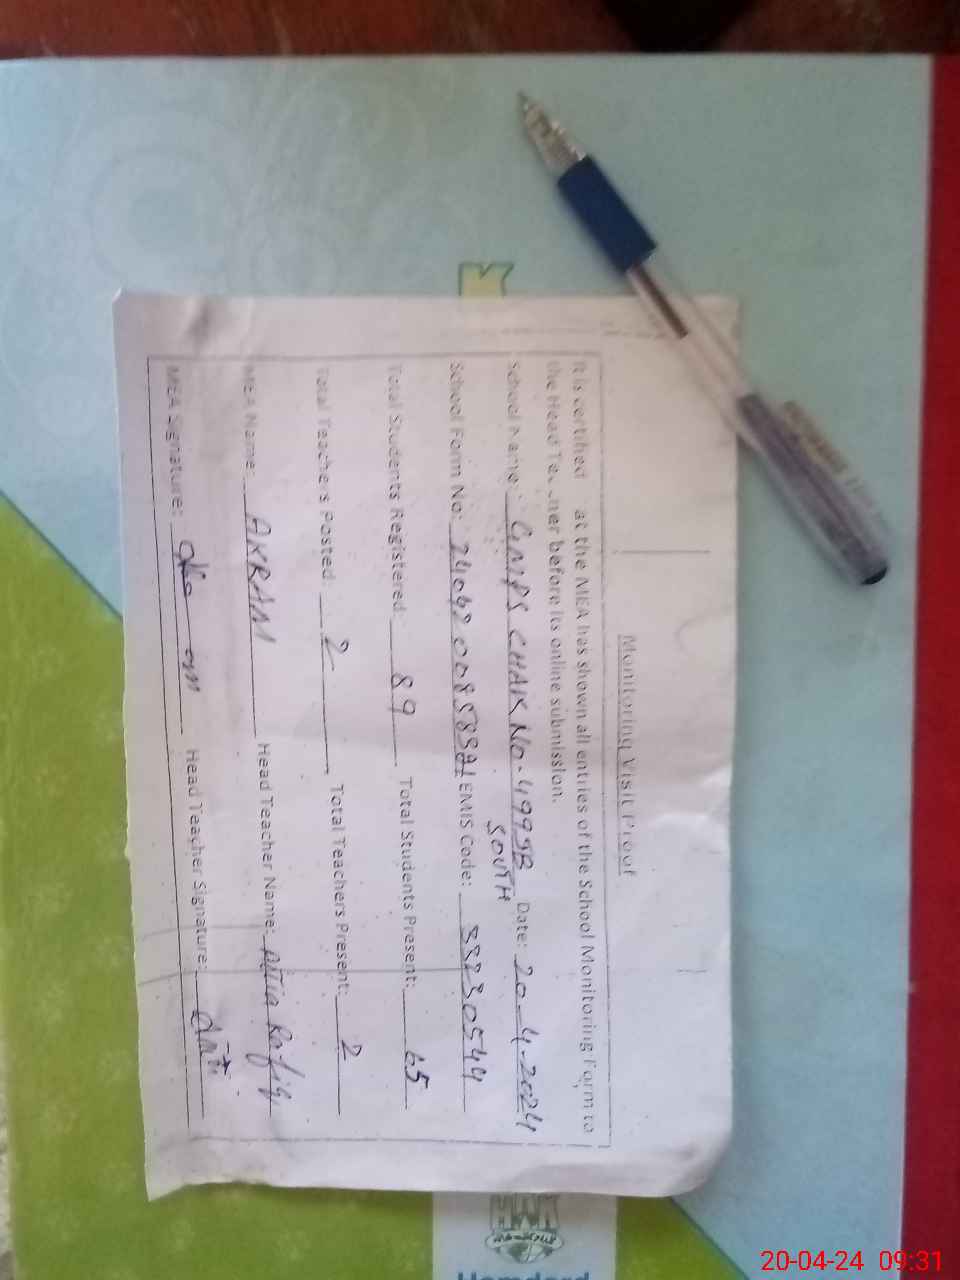 Monitoring Visit Proof
It is certified at the MEA has shown all entries of the School Monitoring Form to
the Head before its online submission.
School Name: GMPS CHAK NO-499JB Date: 20-4-2024
SOUTH
School Form No: EMIS Code: 38230544
Total Students Registered: 89 Total Students Present: 65
Total Teachers Posted: 2 Total Teachers Present: 2
MEA Name: AKRAM Head Teacher Name: Attia Rafiq
MEA Signature: Head Teacher Signature:
20-04-24 09:31